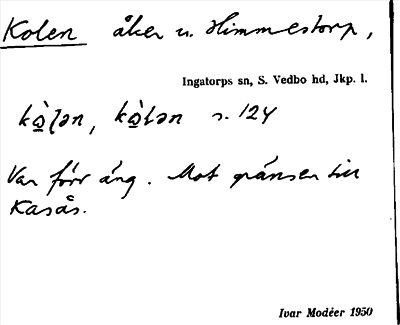 Kolen åker u. Himmestorp,
Ingatorps sn, S. Vedbo hd, Jkp. l.
kò̱ḷən, kò̱lən s. 124
Var förr äng. Mot gränsen till
Kasås.
Ivar Modéer 1950